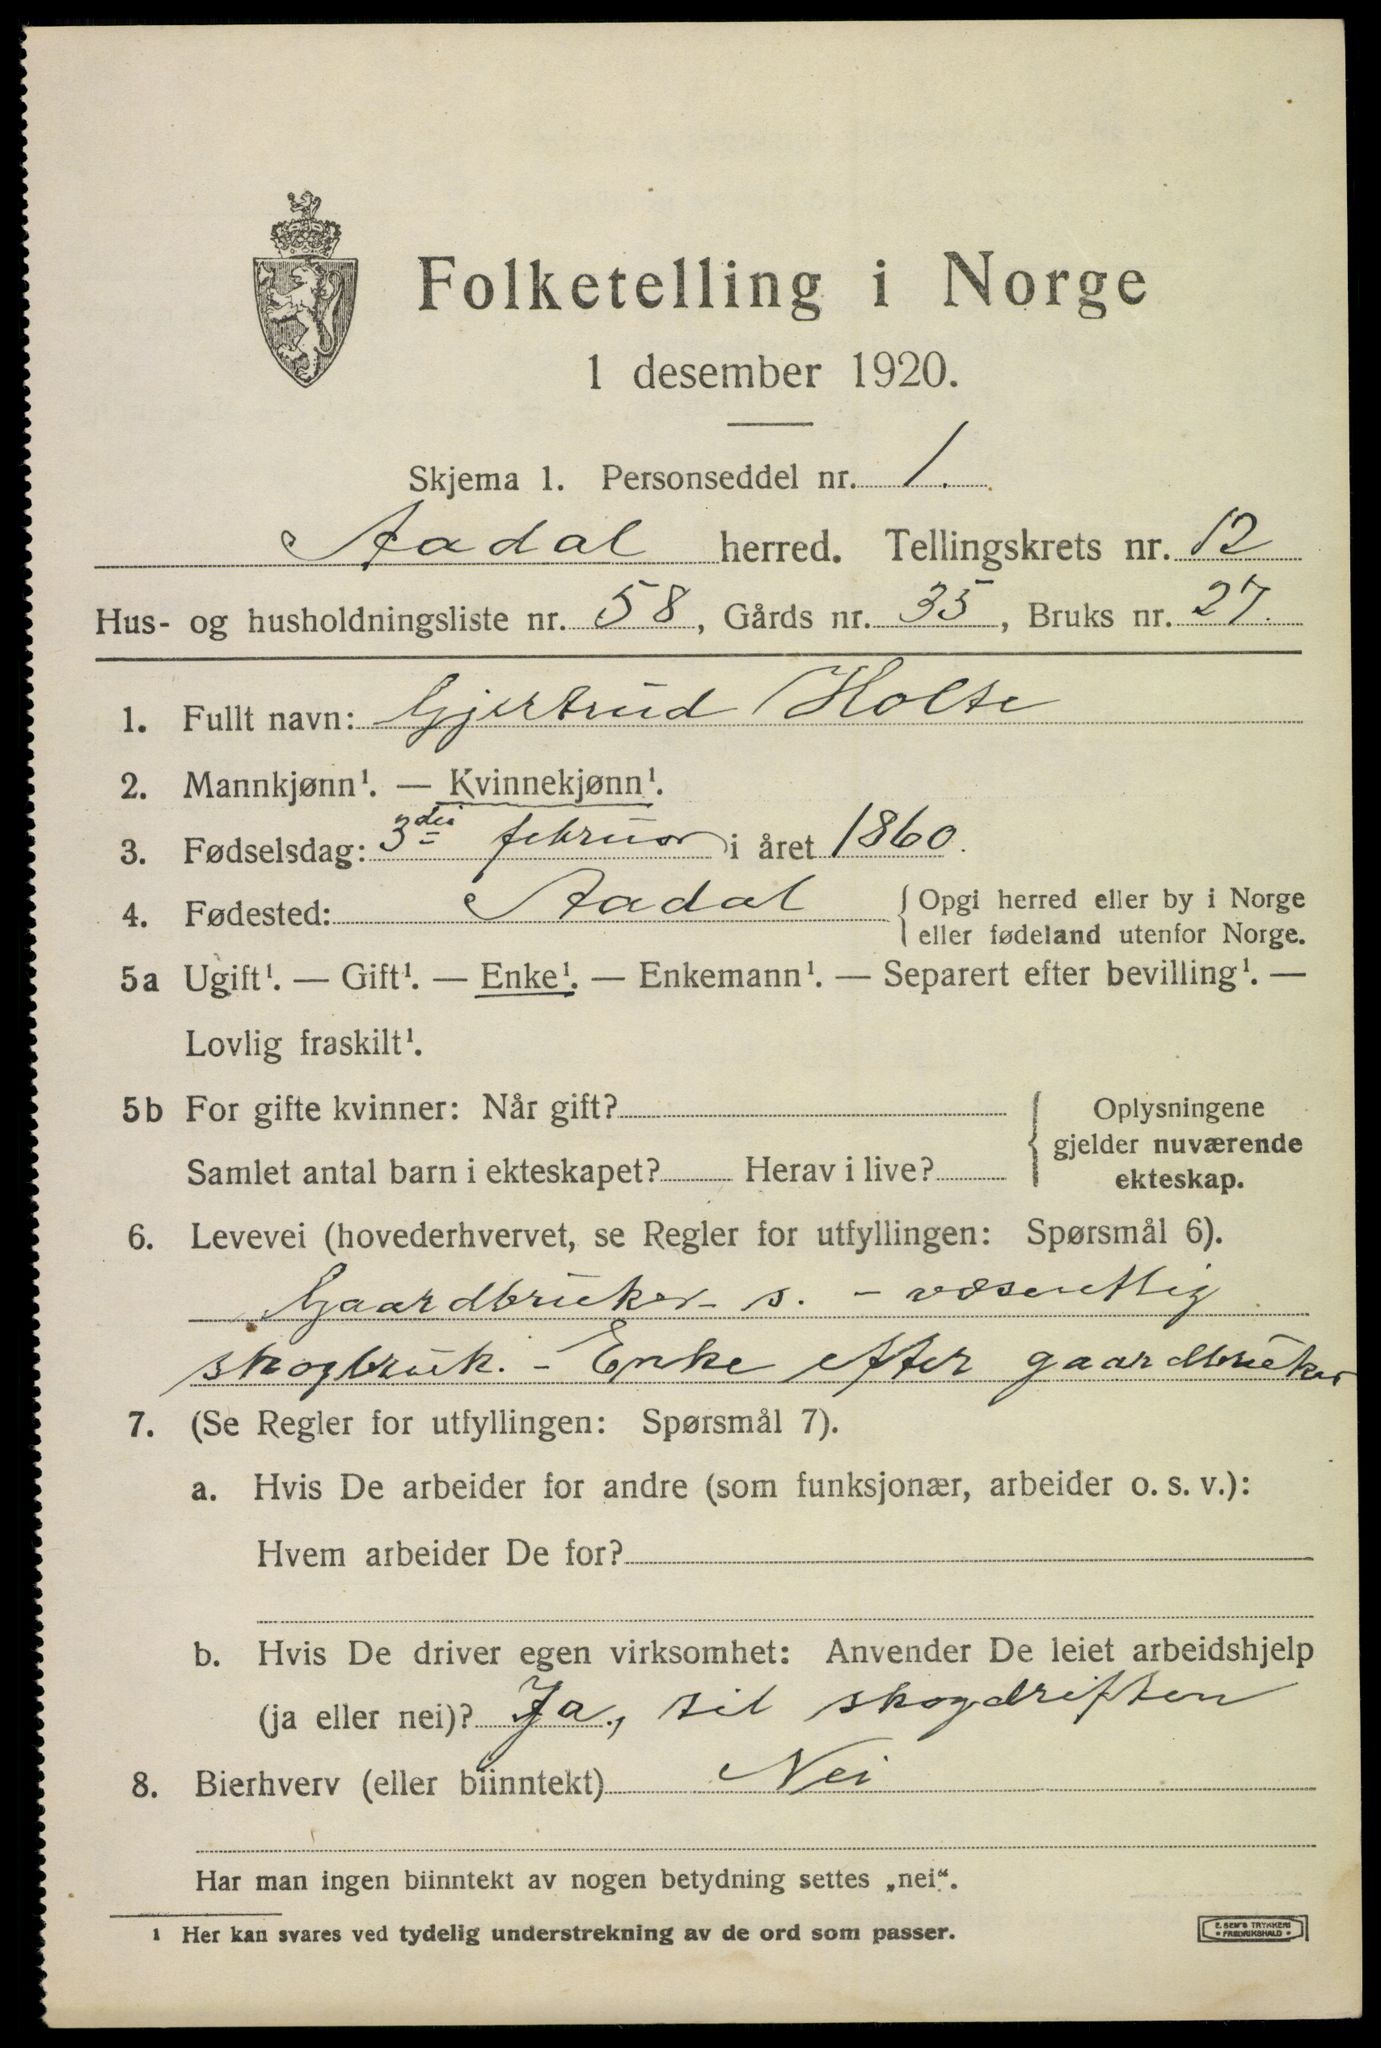 Folketelling i Norge
1 desember 1920.
Skjema 1. Personseddel nr. 1.
Aadal herred. Tellingskrets nr. 12
Hus- og husholdningsliste nr. 58, Gårds nr. 35, Bruks nr. 27.
1. Fullt navn: Gjertrud Holte
2. Mannkjønn¹. — Kvinnekjønn¹.
3. Fødselsdag: 3die februar i året 1860.
4. Fødested: Aadal { Opgi herred eller by i Norge
eller fødeland utenfor Norge.
5a Ugift¹. — Gift¹. — Enke¹. — Enkemann¹. — Separert efter bevilling¹. —
Lovlig fraskilt¹.
5b For gifte kvinner: Når gift? { Oplysningene
gjelder nuværende
Samlet antal barn i ekteskapet? Herav i live? ekteskap.
6. Levevei (hovederhvervet, se Regler for utfyllingen: Spørsmål 6).
Gaardbruker s. - væsentlig
skogbruk. - Enke efter gaardbruker
7. (Se Regler for utfyllingen: Spørsmål 7).
a. Hvis De arbeider for andre (som funksjonær, arbeider o. s. v.):
Hvem arbeider De for?
b. Hvis De driver egen virksomhet: Anvender De leiet arbeidshjelp
(ja eller nei)? Ja, til skogdriften
8. Bierhverv (eller biinntekt) Nei
Har man ingen biinntekt av nogen betydning settes „nei“.
¹ Her kan svares ved tydelig understrekning av de ord som passer.
E. SEM'S TRYKKERI
• FREDRIKSHALD •